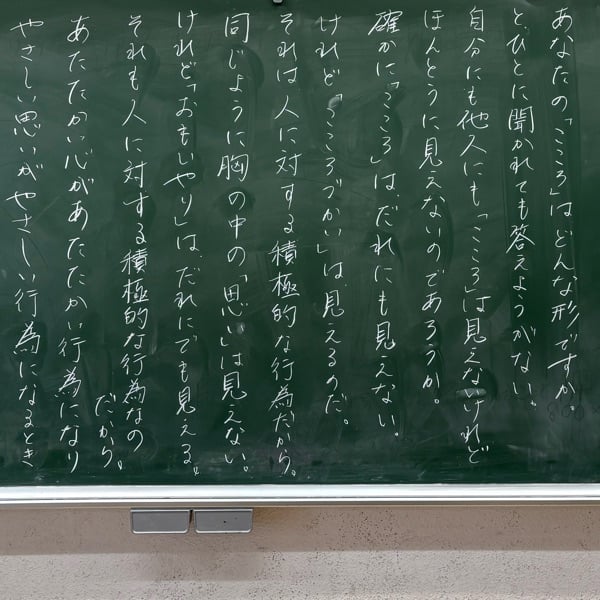 あなたの「こころ」はどんな形ですか。
とひとに聞かれても答えようがない。
自分にも他人にも「こころ」は見えないけれど
ほんとうに見えないのであろうか。
確かに「こころ」はだれにも見えない。
けれど「こころづかい」は見えるのだ。
それは人に対する積極的な行為だから。
同じように胸の中の「思い」は見えない。
けれど「おもいやり」は、だれにでも見える。
それも人に対する積極的な行為なの
だから。
あたたかい心があたたかい行為になり
やさしい思いがやさしい行為になるとき